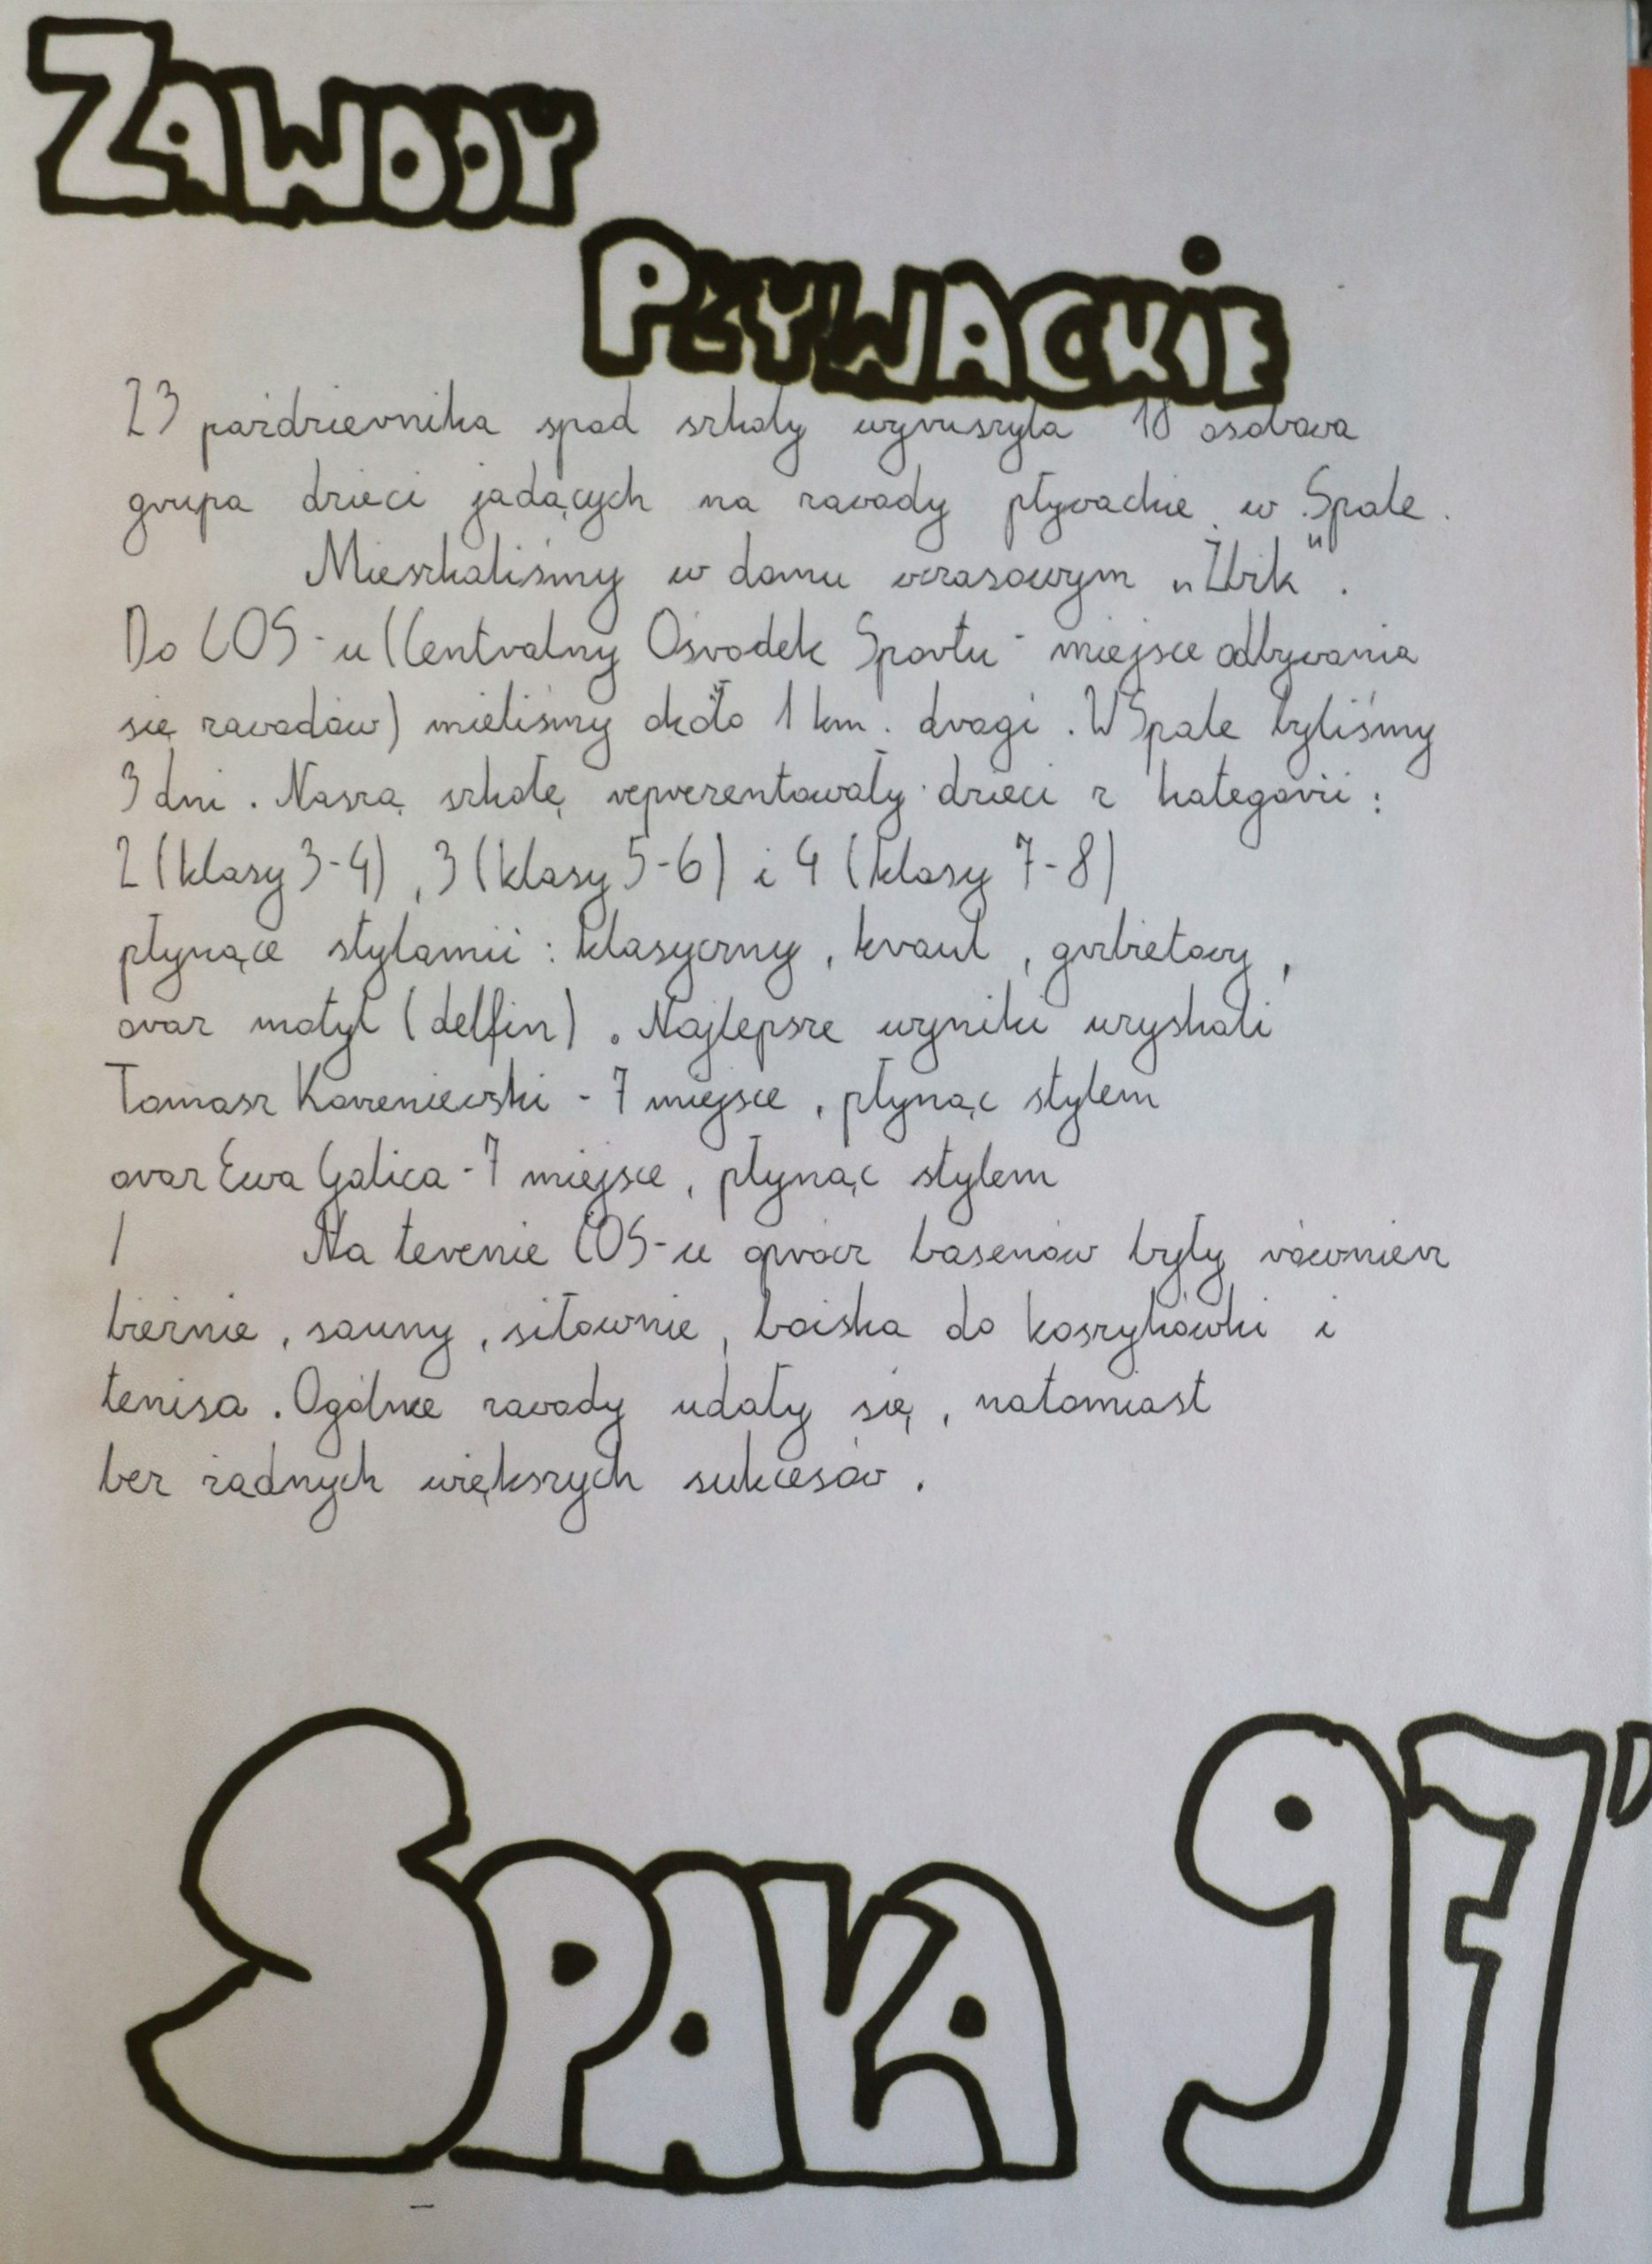 ZAWODY
PŁYWACKIE
23 października spod szkoły wyruszyła 18 osobowa
grupa dzieci jadących na zawody pływackie w Spale.
Mieszkaliśmy w domu wczasowym „Żbik".
Do COS-u (Centralny Ośrodek Sportu - miejsce odbywania
się zawodów) mieliśmy około 1 km. drogi. W Spale byliśmy
3 dni. Naszą szkołę reprezentowały dzieci z kategorii:
2 (klasy 3-4), 3 (klasy 5-6) i 4 (klasy 7-8)
płynące stylamii: klasyczny, kraul, grzbietowy,
oraz motyl (delfin). Najlepsze wyniki uzyskali
Tomasz - 7 miejsce, płynąc stylem
oraz Ewa Galica - 7 miejsce, płynąc stylem
Na terenie COS-u oprócz basenów były również
bieżnie, sauny, siłownie, boiska do koszykówki i
tenisa. Ogólnie zawody udały się, natomiast
bez żadnych większych sukcesów.
SPAŁA 97'